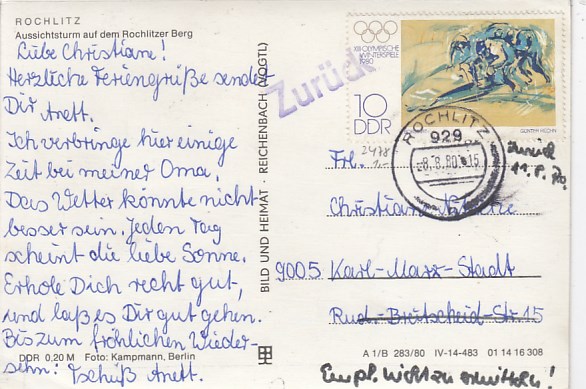 ROCHLITZ
Aussichtsturm auf dem Rochlitzer Berg
Liebe Christiane!
Herzliche Feriengrüße sendet
Dir Anett.
Ich verbringe hier einige
Zeit bei meiner Oma.
Das Wetter könnte nicht
besser sein. Jeden Tag
scheint die liebe Sonne.
Erhole Dich recht gut,
und laß es Dir gut gehen.
Bis zum fröhlichen Wieder-
sehn! Tschüß Anett.
DDR 0,20 M Foto: Kampmann, Berlin
BILD UND HEIMAT · REICHENBACH (VOGTL)
Zurück
XIII. OLYMPISCHE
WINTERSPIELE
1980
10
DDR
ROCHLITZ
929
-8.8.80
Zurück
Frl.
9005 Karl-Marx-Stadt
Rud.-Breitscheid-Str. 15
A 1/B 283/80 IV-14-483 01 14 16 308
Empf. nicht zu ermitteln!